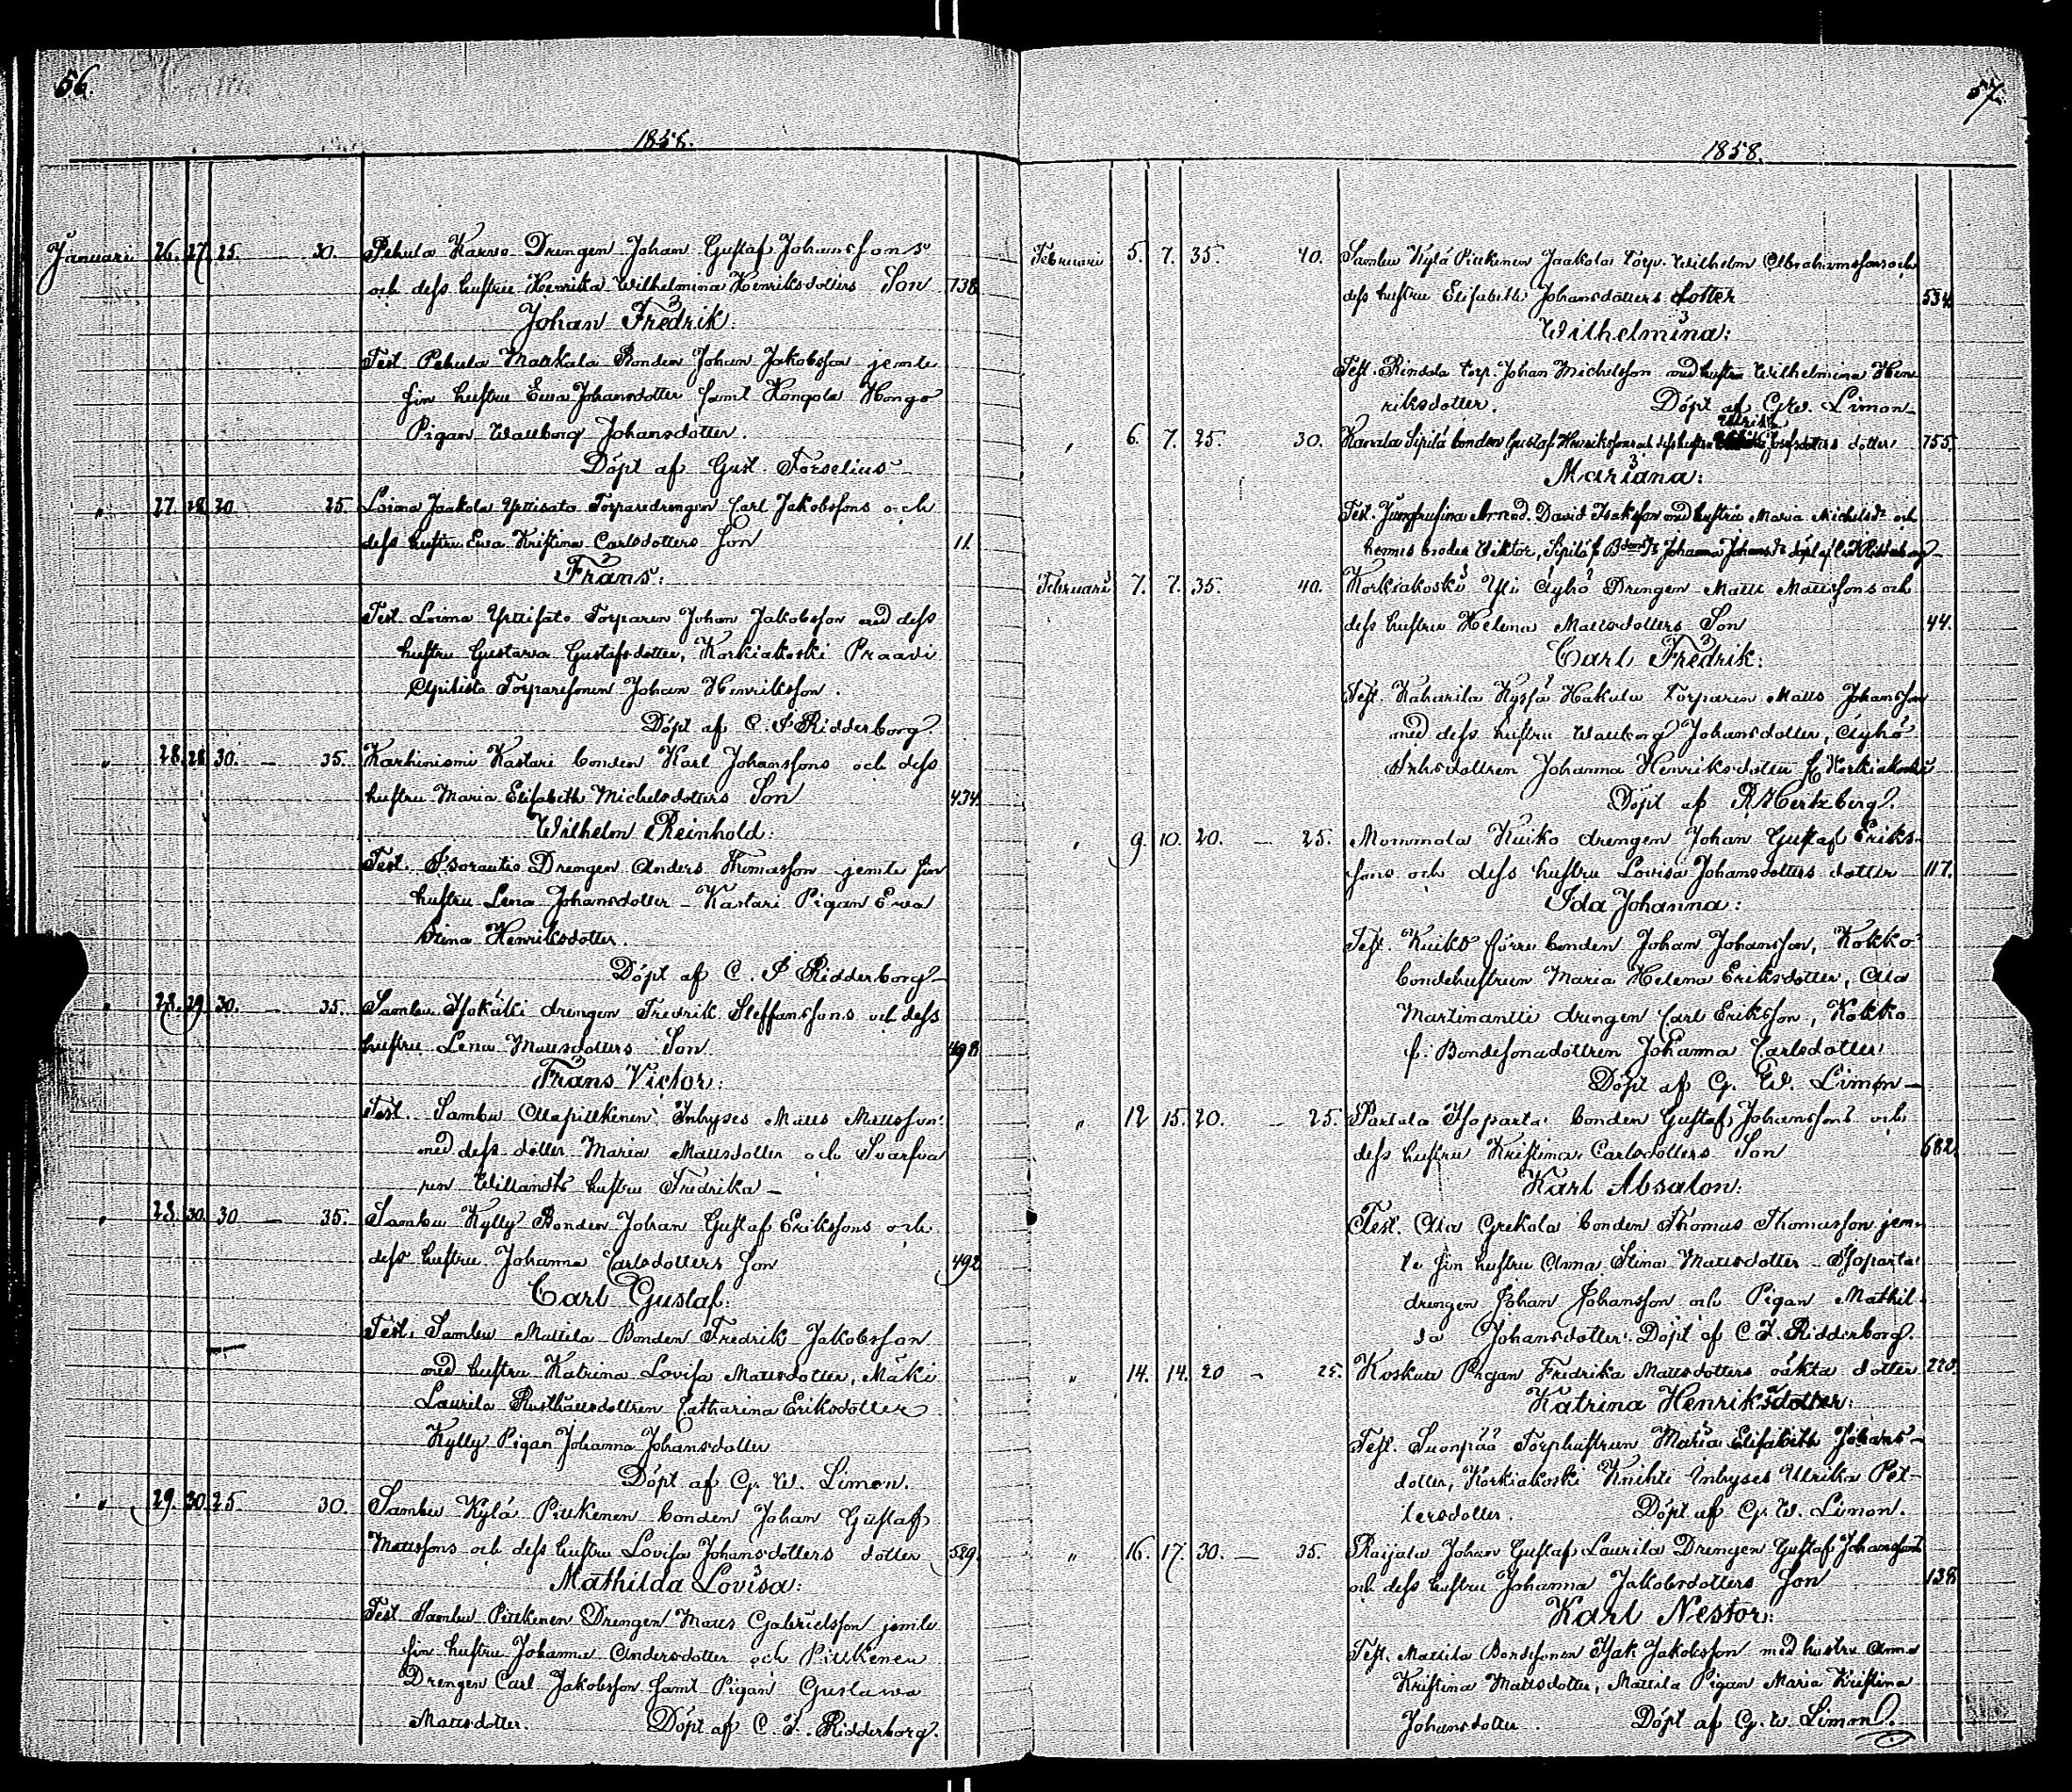 56.
1858.
Januari 26. 27. 25. 30. Pehula Karno Drengen Johan Gustaf Johanssons
och dess hustru Henrika Wilhelmina Henriksdotters Son 738
Johan Fredrik:
Test. Pehula Mattkala Bonden Johan Jakobsson jemte
sin hustru Ewa Johansdotter samt Hongola Hongo
Pigan Wallborg Johansdotter.
Döpt af Gust. Forselius
" 27. 28. 20 25. Loima Jaakola Yttisato Torparedrengen Carl Jakobssons och
dess hustru Ewa Kristina Carlsdotters son 11.
Frans:
Test. Loima Yttisato Torparen Johan Jakobsson med dess
hustru Gustava Gustafsdotter, Korkiakoski Praavi
Torparesonen Johan Henriksson.
Döpt af C. J Ridderborg.
" 28. 28. 30. — 35. Karhiniemi Kastari bonden Karl Johanssons och dess
hustru Maria Elisabeth Michelsdotters Son 434.
Wilhelm Reinhold:
Test. Drengen Anders Thomasson jemte sin
hustru Lena Johansdotter – Kastari Pigan Ewa
Stina Henriksdotter.
Döpt af C. J Ridderborg –
" 28. 29. 30. — 35. Sambu drengen Fredrik Steffanssons och dess
hustru Lena Mattsdotters Son 498
Frans Victor:
Test. Sambu Inhyses Matts Mattsson
med dess dotter Maria Mattsdotter och Svarfva
ren Willandts hustru Fredrika –
" 28. 30. 30 — 35. Sambu Kylly Bonden Johan Gustaf Erikssons och
dess hustru Johanna Carlsdotters son 492
Carl Gustaf:
Test. Sambu Mattila Bonden Fredrik Jakobsson
med hustru Katrina Lovisa Mattsdotter, Mäki
Laurila Rusthållsdottren Catharina Eriksdotter
Kylly Pigan Johanna Johansdotter
Döpt af G. W. Limon.
" 29. 30. 25. 30. Sambu Kylä Pitkenen bonden Johan Gustaf
Mattssons och dess hustru Lovisa Johansdotters dotter 529.
Mathilda Lovisa:
Test Sambu Pitkenen Drengen Matts Gabrielsson jemte
sin hustru Johanna Andersdotter och Pitkenen
Drengen Carl Jakobsson samt Pigan Gustawa
Mattsdotter. Döpt af C. J. Ridderborg.
57.
1858.
Februari 5. 7. 35. 40. Sambu Kylä Pitkenen Jaakola Torp. Wilhelm Abrahamssons och
dess hustru Elisabeth Johansdotters dotter 534.
Wilhelmina:
Test. Rindala torp. Johan Michelsson med hustru Wilhelmina Hen
riksdotter. Döpt af G.W. Limon –
" 6. 7. 25. 30. Sipilä bonden Gustaf Henrikssons och dess hustru Ulrika Josefsdotters dotter 755.
Mariana:
Test. David Isaksson med hustru Maria Michelsdr och
hennes broder Viktor, Johanna
Februari 7. 7. 35. 40. Korkiakoski Yli Äyhö Drengen Matti Mattssons och
dess hustru Helena Mattsdotters Son 44.
Carl Fredrik:
Test. Kaharila Hakala Torparen Matts Johansson
med dess hustru Wallborg Johansdotter, Äyhö
Inhsdottren Johanna Henriksdotter fr Korkiakoski
Döpt af R Hertzberg.
" 9. 10. 20. — 25. Mommola Kuiko drengen Johan Gustaf Eriks-
sons och dess hustru Lovisa Johansdotters dotter 117.
Ida Johanna:
Test. Kuiko förre bonden Johan Johansson, Kokko
bondehustrun Maria Helena Eriksdotter, Ala
Martinantti drengen Carl Eriksson, Kokko
f. Bondesonadottren Johanna Carlsdotter
Döpt af G. W. Limon –
" 12. 15. 20. — 25. Partala Isoparta bonden Gustaf Johanssons och
dess hustru Kristina Carlsdotters Son 682.
Karl Absalon:
Test. Ala Grekola bonden Thomas Thomasson jem-
te sin hustru Anna Stina Mattsdotter – Isoparta
drengen Johan Johansson och Pigan Mathil-
da Johansdotter. Döpt af C J. Ridderborg.
" 14. 14. 20 — 25. Koskua Pigan Fredrika Mattsdotters oäkta dotter 220.
Katrina Henriksdotter:
Test. Suonpää Torphustrun Maria Elisabeth Johans-
dotter, Korkiakoski Knihti Inhyses Ulrika Pet-
tersdotter. Döpt af G. W. Limon.
" 16. 17. 30. — 35. Raijala Johan Gustaf Laurila Drengen Gustaf Johanssons
och dess hustru Johanna Jakobsdotters Son 138
Karl Nestor:
Test. Mattila Bondesonen Isak Jakobsson med hustru Anna
Kristina Mattsdotter, Mattila Pigan Maria Kristina
Johansdotter. Döpt af G. W. Limon.